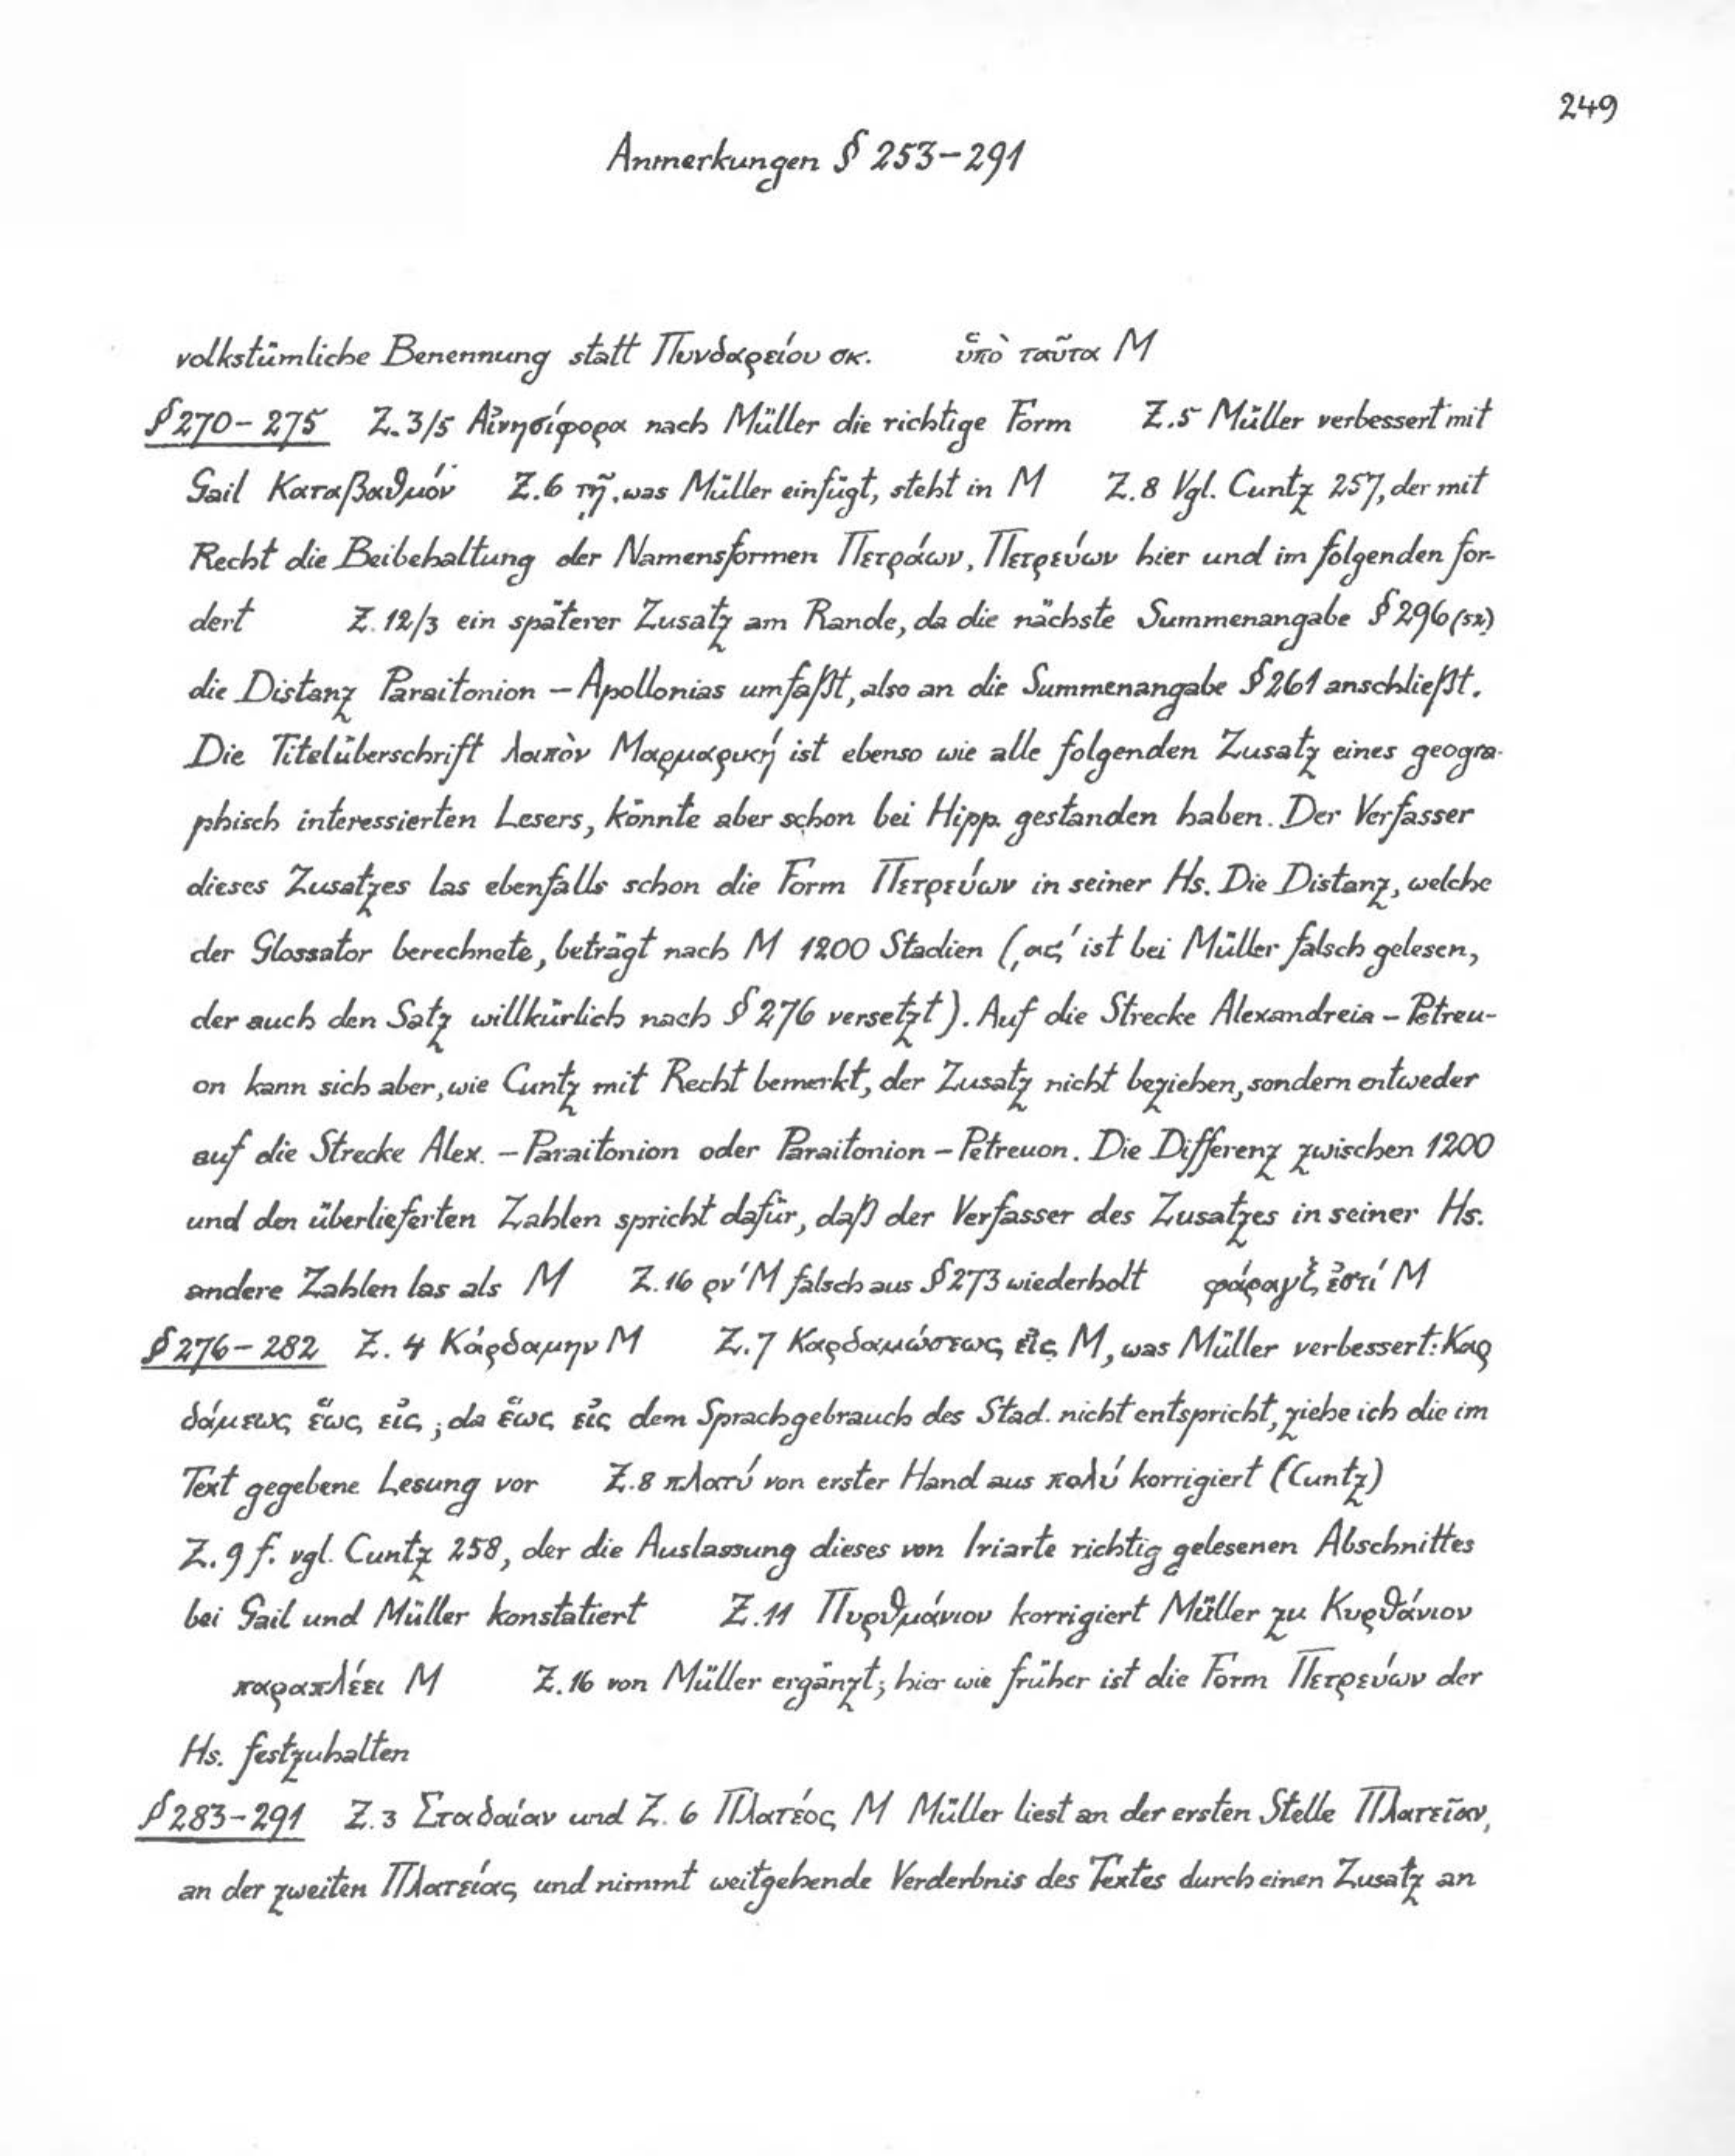 249
Anmerkungen § 253-291
volkstümliche Benennung statt Πυνδαρείου σκ. ὑπὸ ταῦτα M
§270-275 Z.3/5 Αἰνησίφορα nach Müller die richtige Form Z.5 Müller verbessert mit
Gail Καταβαθμόν Z.6 τῇ, was Müller einfügt, steht in M Z.8 Vgl. Cuntz 257, der mit
Recht die Beibehaltung der Namensformen Πετράων, Πετρεύων hier und im folgenden for-
dert Z.12/3 ein späterer Zusatz am Rande, da die nächste Summenangabe §296 (52)
die Distanz Paraitonion – Apollonias umfaßt, also an die Summenangabe §261 anschließt.
Die Titelüberschrift λοιπὸν Μαρμαρική ist ebenso wie alle folgenden Zusatz eines geogra-
phisch interessierten Lesers, könnte aber schon bei Hipp. gestanden haben. Der Verfasser
dieses Zusatzes las ebenfalls schon die Form Πετρεύων in seiner Hs. Die Distanz, welche
der Glossator berechnete, beträgt nach M 1200 Stadien (͵ας' ist bei Müller falsch gelesen,
der auch den Satz willkürlich nach §276 versetzt). Auf die Strecke Alexandreia – Petreu-
on kann sich aber, wie Cuntz mit Recht bemerkt, der Zusatz nicht beziehen, sondern entweder
auf die Strecke Alex. – Paraitonion oder Paraitonion – Petreuon. Die Differenz zwischen 1200
und den überlieferten Zahlen spricht dafür, daß der Verfasser des Zusatzes in seiner Hs.
andere Zahlen las als M Z.16 ρν' M falsch aus §273 wiederholt φάραγξ ἐστί M
§276-282 Z. 4 Κάρδαμην M Z.7 Καρδαμώσεως εἰς M, was Müller verbessert: Καρ
δάμεως ἕως εἰς; da ἕως εἰς dem Sprachgebrauch des Stad. nicht entspricht, ziehe ich die im
Text gegebene Lesung vor Z.8 πλατύ von erster Hand aus πολύ korrigiert (Cuntz)
Z.9 f. vgl. Cuntz 258, der die Auslassung dieses von Iriarte richtig gelesenen Abschnittes
bei Gail und Müller konstatiert Z.11 Πυρθμάνιον korrigiert Müller zu Κυρθάνιον
παραπλέει M Z.16 von Müller ergänzt; hier wie früher ist die Form Πετρεύων der
Hs. festzuhalten
§283-291 Z.3 Σταδαίαν und Z. 6 Πλατέος M Müller liest an der ersten Stelle Πλατεῖαν,
an der zweiten Πλατείας und nimmt weitgehende Verderbnis des Textes durch einen Zusatz an